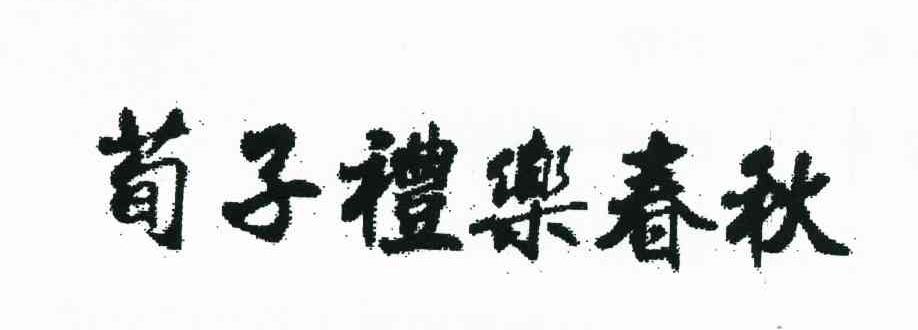 荀子禮樂春秋